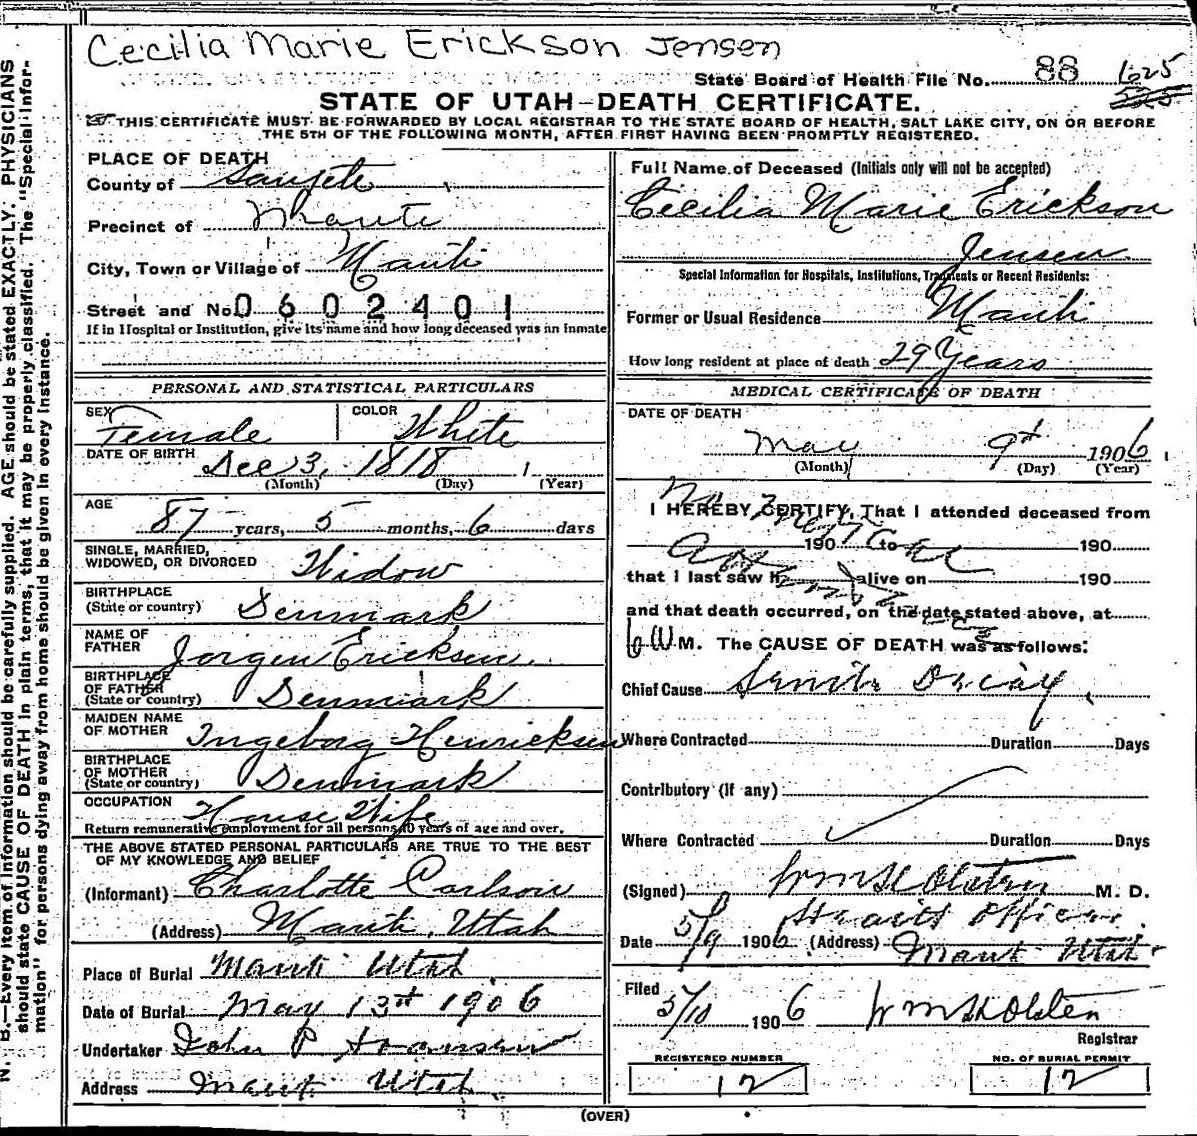 Cecilia Marie Erickson Jensen
State Board of Health File No. 88 625
STATE OF UTAH—DEATH CERTIFICATE.
THIS CERTIFICATE MUST BE FORWARDED BY LOCAL REGISTRAR TO THE STATE BOARD OF HEALTH, SALT LAKE CITY, ON OR BEFORE
THE 5TH OF THE FOLLOWING MONTH, AFTER FIRST HAVING BEEN PROMPTLY REGISTERED.
PLACE OF DEATH
County of Sanpete
Precinct of Manti
City, Town or Village of Manti
Street and No. 0602401
If in Hospital or Institution, give its name and how long deceased was an inmate
PERSONAL AND STATISTICAL PARTICULARS
SEX Female COLOR White
DATE OF BIRTH Dec 3, 1818
(Month) (Day) (Year)
AGE
87 years, 5 months, 6 days
SINGLE, MARRIED,
WIDOWED, OR DIVORCED Widow
BIRTHPLACE
(State or country) Denmark
NAME OF
FATHER Jorgen Ericksen
BIRTHPLACE
OF FATHER
(State or country) Denmark
MAIDEN NAME
OF MOTHER Ingeborg Henricksen
BIRTHPLACE
OF MOTHER
(State or country) Denmark
OCCUPATION House Wife
Return remunerative employment for all persons 10 years of age and over.
THE ABOVE STATED PERSONAL PARTICULARS ARE TRUE TO THE BEST
OF MY KNOWLEDGE AND BELIEF
(Informant) Charlotte Carlson
(Address) Manti, Utah
Place of Burial Manti Utah
Date of Burial May 13th 1906
Undertaker John P
Address Manti Utah
Full Name of Deceased (Initials only will not be accepted)
Cecilia Marie Erickson
Jensen
Special Information for Hospitals, Institutions, Transients or Recent Residents:
Former or Usual Residence Manti
How long resident at place of death 29 Years
MEDICAL CERTIFICATE OF DEATH
DATE OF DEATH
May 9th 1906
(Month) (Day) (Year)
I HEREBY CERTIFY, That I attended deceased from
190 to 190
that I last saw h alive on 190
and that death occurred, on the date stated above, at
6 M. The CAUSE OF DEATH was as follows:
Chief Cause Senile Decay
Where Contracted Duration Days
Contributory (if any)
Where Contracted Duration Days
(Signed) Wm H Olsten M. D.
Health Officer
Date 5/9 1906 (Address) Manti Utah
Filed
5/10 1906 Wm H Olsten
Registrar
REGISTERED NUMBER
12
NO. OF BURIAL PERMIT
12
(OVER)
N. B.—Every item of information should be carefully supplied. AGE should be stated EXACTLY. PHYSICIANS
should state CAUSE OF DEATH in plain terms, that it may be properly classified. The "Special Infor-
mation" for persons dying away from home should be given in every instance.